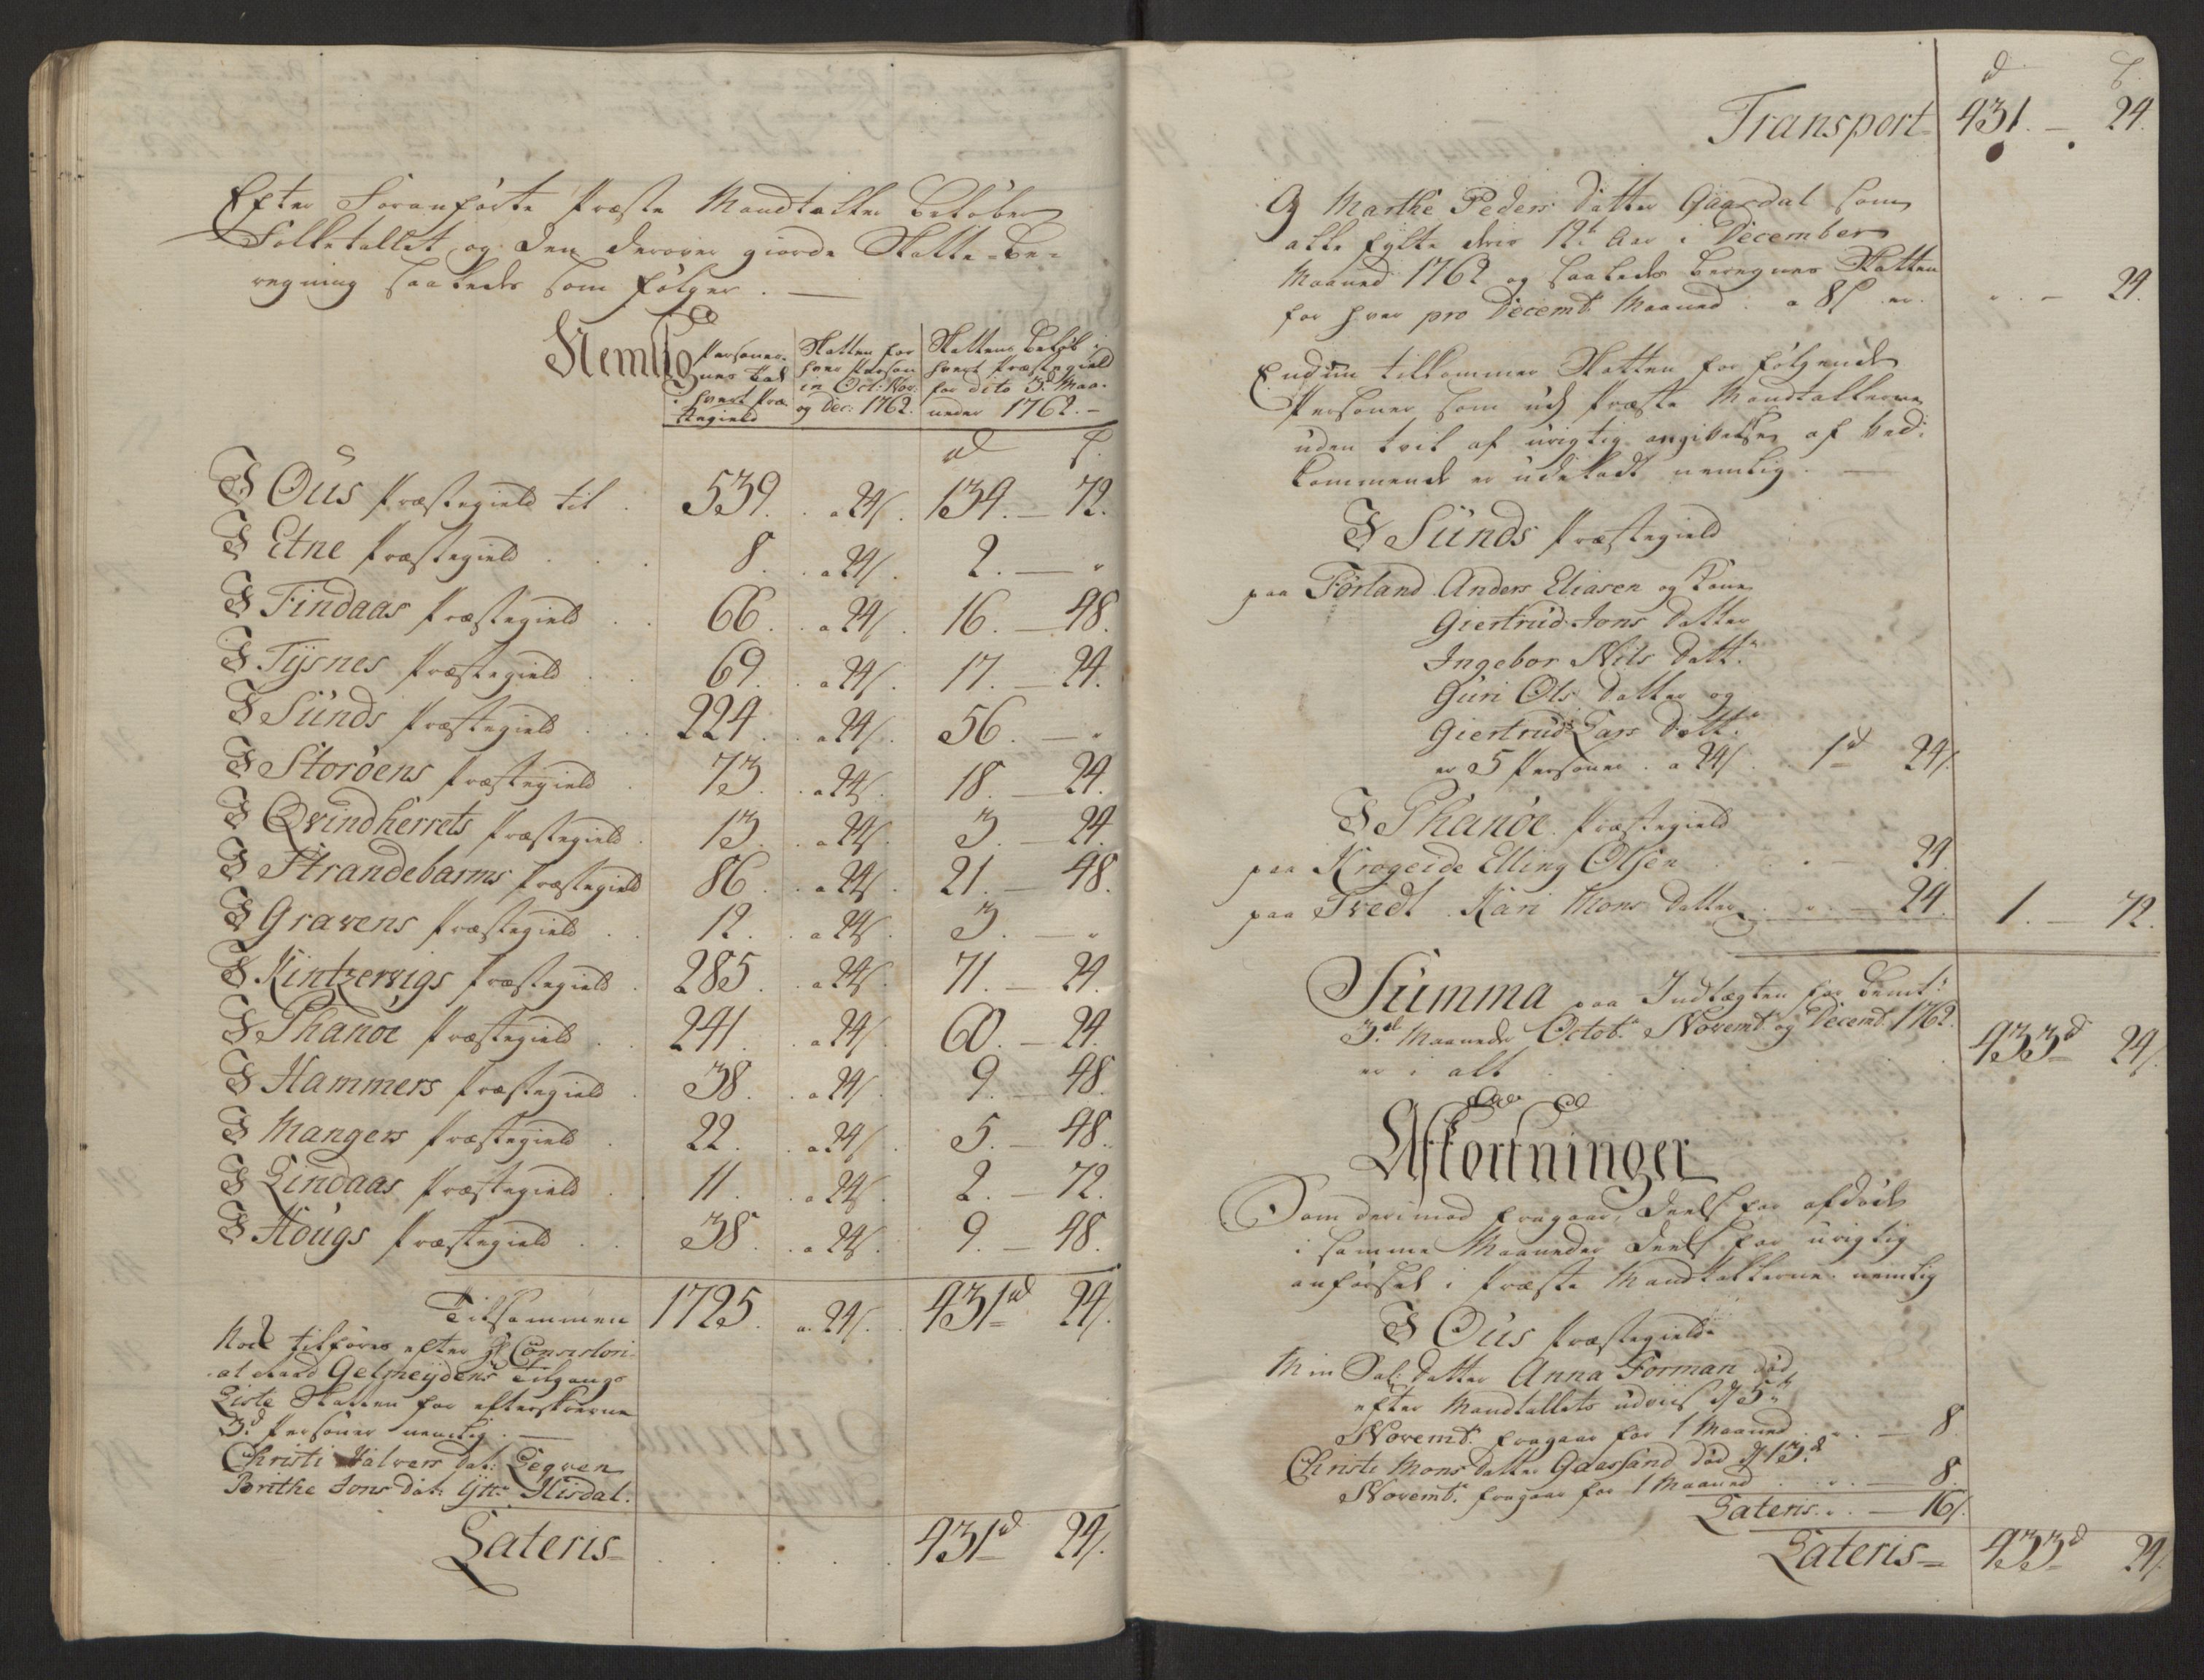 Efter Foranførte Præste Mandtaller beløber
Folketallet og den derover giorde Skatte-be-
regning saaledes som følger. —
Nemlig
Personer- nes Tal i hvert Præ- stegield | Skatten for hver Person in Oct: Nov: og Dec: 1762. | Skattens beløb i hvert Præstegield for dito 3de Maa- neder 1762. —
d ſ.
I Ous Præstegield til . 539. . a 24ſ. 134. — 72.
I Etne Præstegield . . . 8. . a 24ſ. 2. — "
I Findaas Præstegield . . 66. . a 24ſ. 16. — 48.
I Tysnes Præstegield . . 69. . a 24ſ. 17. — 24.
I Sunds Præstegield . . . 224. . a 24ſ. 56. — "
I Storøens Præstegield . 73. . a 24ſ. 18. — 24.
I Qvindherrets Præstegield . 13. . a 24ſ. 3. — 24.
I Strandebarms Præstegield 86. . a 24ſ. 21. — 48.
I Gravens Præstegield . . 12. . a 24ſ. 3. — "
I Kintzervigs Præstegield . 285. . a 24ſ. 71. — 24.
I Phanøe Præstegield . . 241. . a 24ſ. 60. — 24.
I Hammers Præstegield . 38. . a 24ſ. 9. — 48.
I Mangers Præstegield . 22. . a 24ſ. 5. — 48.
I Lindaas Præstegield . . 11. . a 24ſ. 2. — 72.
I Hougs Præstegield . . 38. . a 24ſ. 9. — 48.
Tilsammen 1725. a 24ſ. 431d 24ſ.
Nok tilføres efter Hr Consistori-
al Raad Gelmeydens Tilgangs
Liste Skatten for efterskrevne
3de Personer nemlig. —
Christi Halvers Dat: Legven
Brithe Jons Dat: Ytt: Hisdal.
Lateris . . . . 431d 24ſ.
d ſ.
Transport 431. — 24.
Og Marthe Peders Datter Gaasdal som
alle fylte deris 12te Aar i December
Maaned 1762 og saaledes beregnes Skatten
for hver pro Decembr Maaned a 8ſ er . " — 24.
Endnu tilkommer Skatten for følgende
Personer som udj Præste Mandtallerne
uden tvil af urigtig angivelse af Ved-
kommende er udeladt nemlig. —
I Sunds Præstegield
paa Førland Anders Eliasen og Kone
Giertrud Jons Datter
Ingebor Nils Dattr
Guri Ols Datter og
Giertrud Lars Dattr
er 5 Personer a 24ſ . 1d 24ſ.
I Phanøe Præstegield
paa Krogeide Elling Olsen . . . — 24.
paa Tvedt Kari Mons Datter . . — 24. 1. — 72.
Summa paa Indtægten for bemte
3de Maaneder Octobr Novembr og Decembr 1762.
er i alt . . . . . 433d 24ſ.
Afkortninger
Som derimod fragaar, Deels for afdøde
i samme Maaneder Deels for urigtig
anførsel i Præste Mandtallerne nemlig
I Ous Præstegield
Min Sal: Datter Anna Forman død
efter Mandtallets udviis d 5te
Novembr fragaar for 1 Maaned . . — 8.
Christi Mons Datter Gaassand død d 13de
Novembr fragaar for 1 Maaned . . . — 8.
Lateris . . — 16ſ.
Lateris 433d 24ſ.